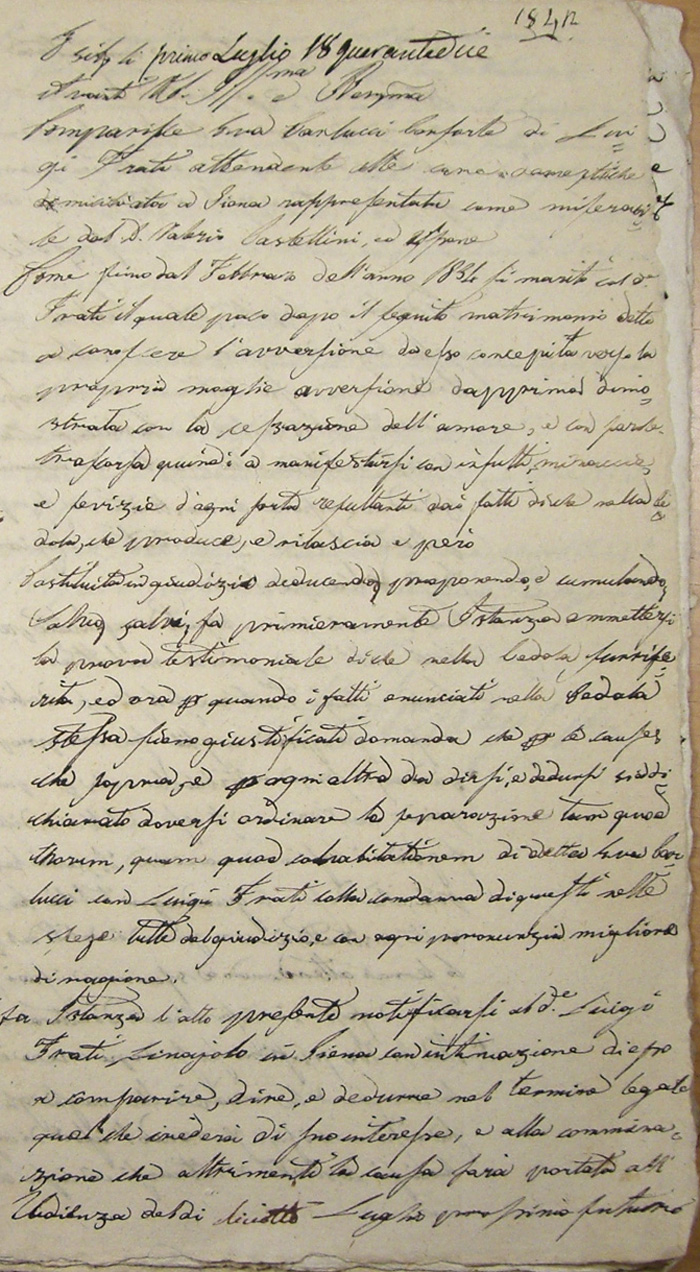 1842
Esib. li primo Luglio 18quarantadue
Avanti Ill.ma e Rev.ma
Comparisce Eva Carlucci Consorte di Lui=
gi Frati attendente alle cure domestiche
domiciliata a Siena rappresentata come misera=
le dal D. Valerio Castellini, ed espone
Come fino dal Febbraro dell'anno 1834 si maritò col d.o
Frati il quale poco dopo il seguito matrimonio dette
a conoscere l'avversione da esso concepita verso la
propria moglie avversione dapprima dimo=
strata con la cessazione dell'amore, e con parole
trascorsa quindi a manifestarsi con insulti, minaccie,
e sevizie d'ogni sorta resultanti dai fatti di che nella Ce
dola, che produce, e rilascia e però
Costituita in giudizio deducendo, proponendo, e cumulando,
Salvis salvi, fa primieramente Istanza ammettersi
la prova testimoniale di che nella Cedola surrife=
rita, ed ora p quando i fatti enunciati nella Cedola
stessa sieno giustificati domanda che p le cause,
che sopra, e p ogni altra da dirsi, e dedursi sia di
chiarato doversi ordinare la separazione tam quod
thorum, quam quod cohabitationem di detta Eva Car=
lucci con Luigi Frati colla condanna di questi nelle
spese tutte del giudizio, e con ogni pronunzia migliore
di ragione.
fa Istanza l'atto presente notificarsi al d.e Luigi
Frati Linajolo in Siena con intimazione di esso
a comparire, dire, e dedurre nel termine legale
quel che crederà di suo interesse, e alla commina=
zione che altrimenti la causa sarà portata all'
Udienza del dì diciotto Luglio prossimo futuro